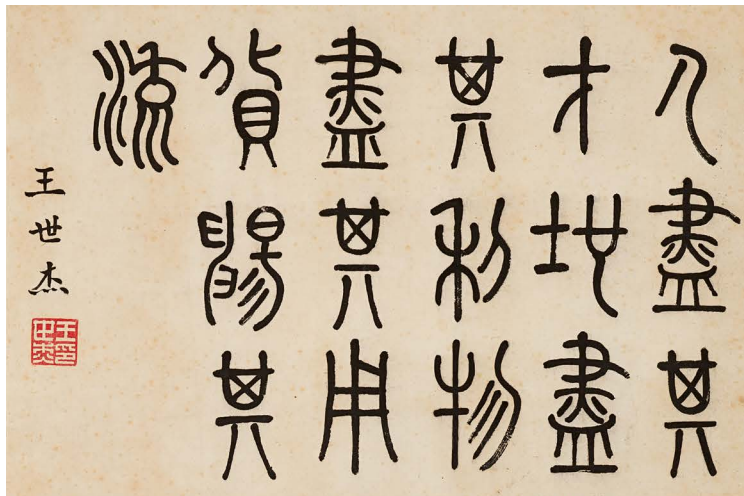 人盡其
才地盡
其利物
盡其用
貨暢其
流
王世杰
王印世杰